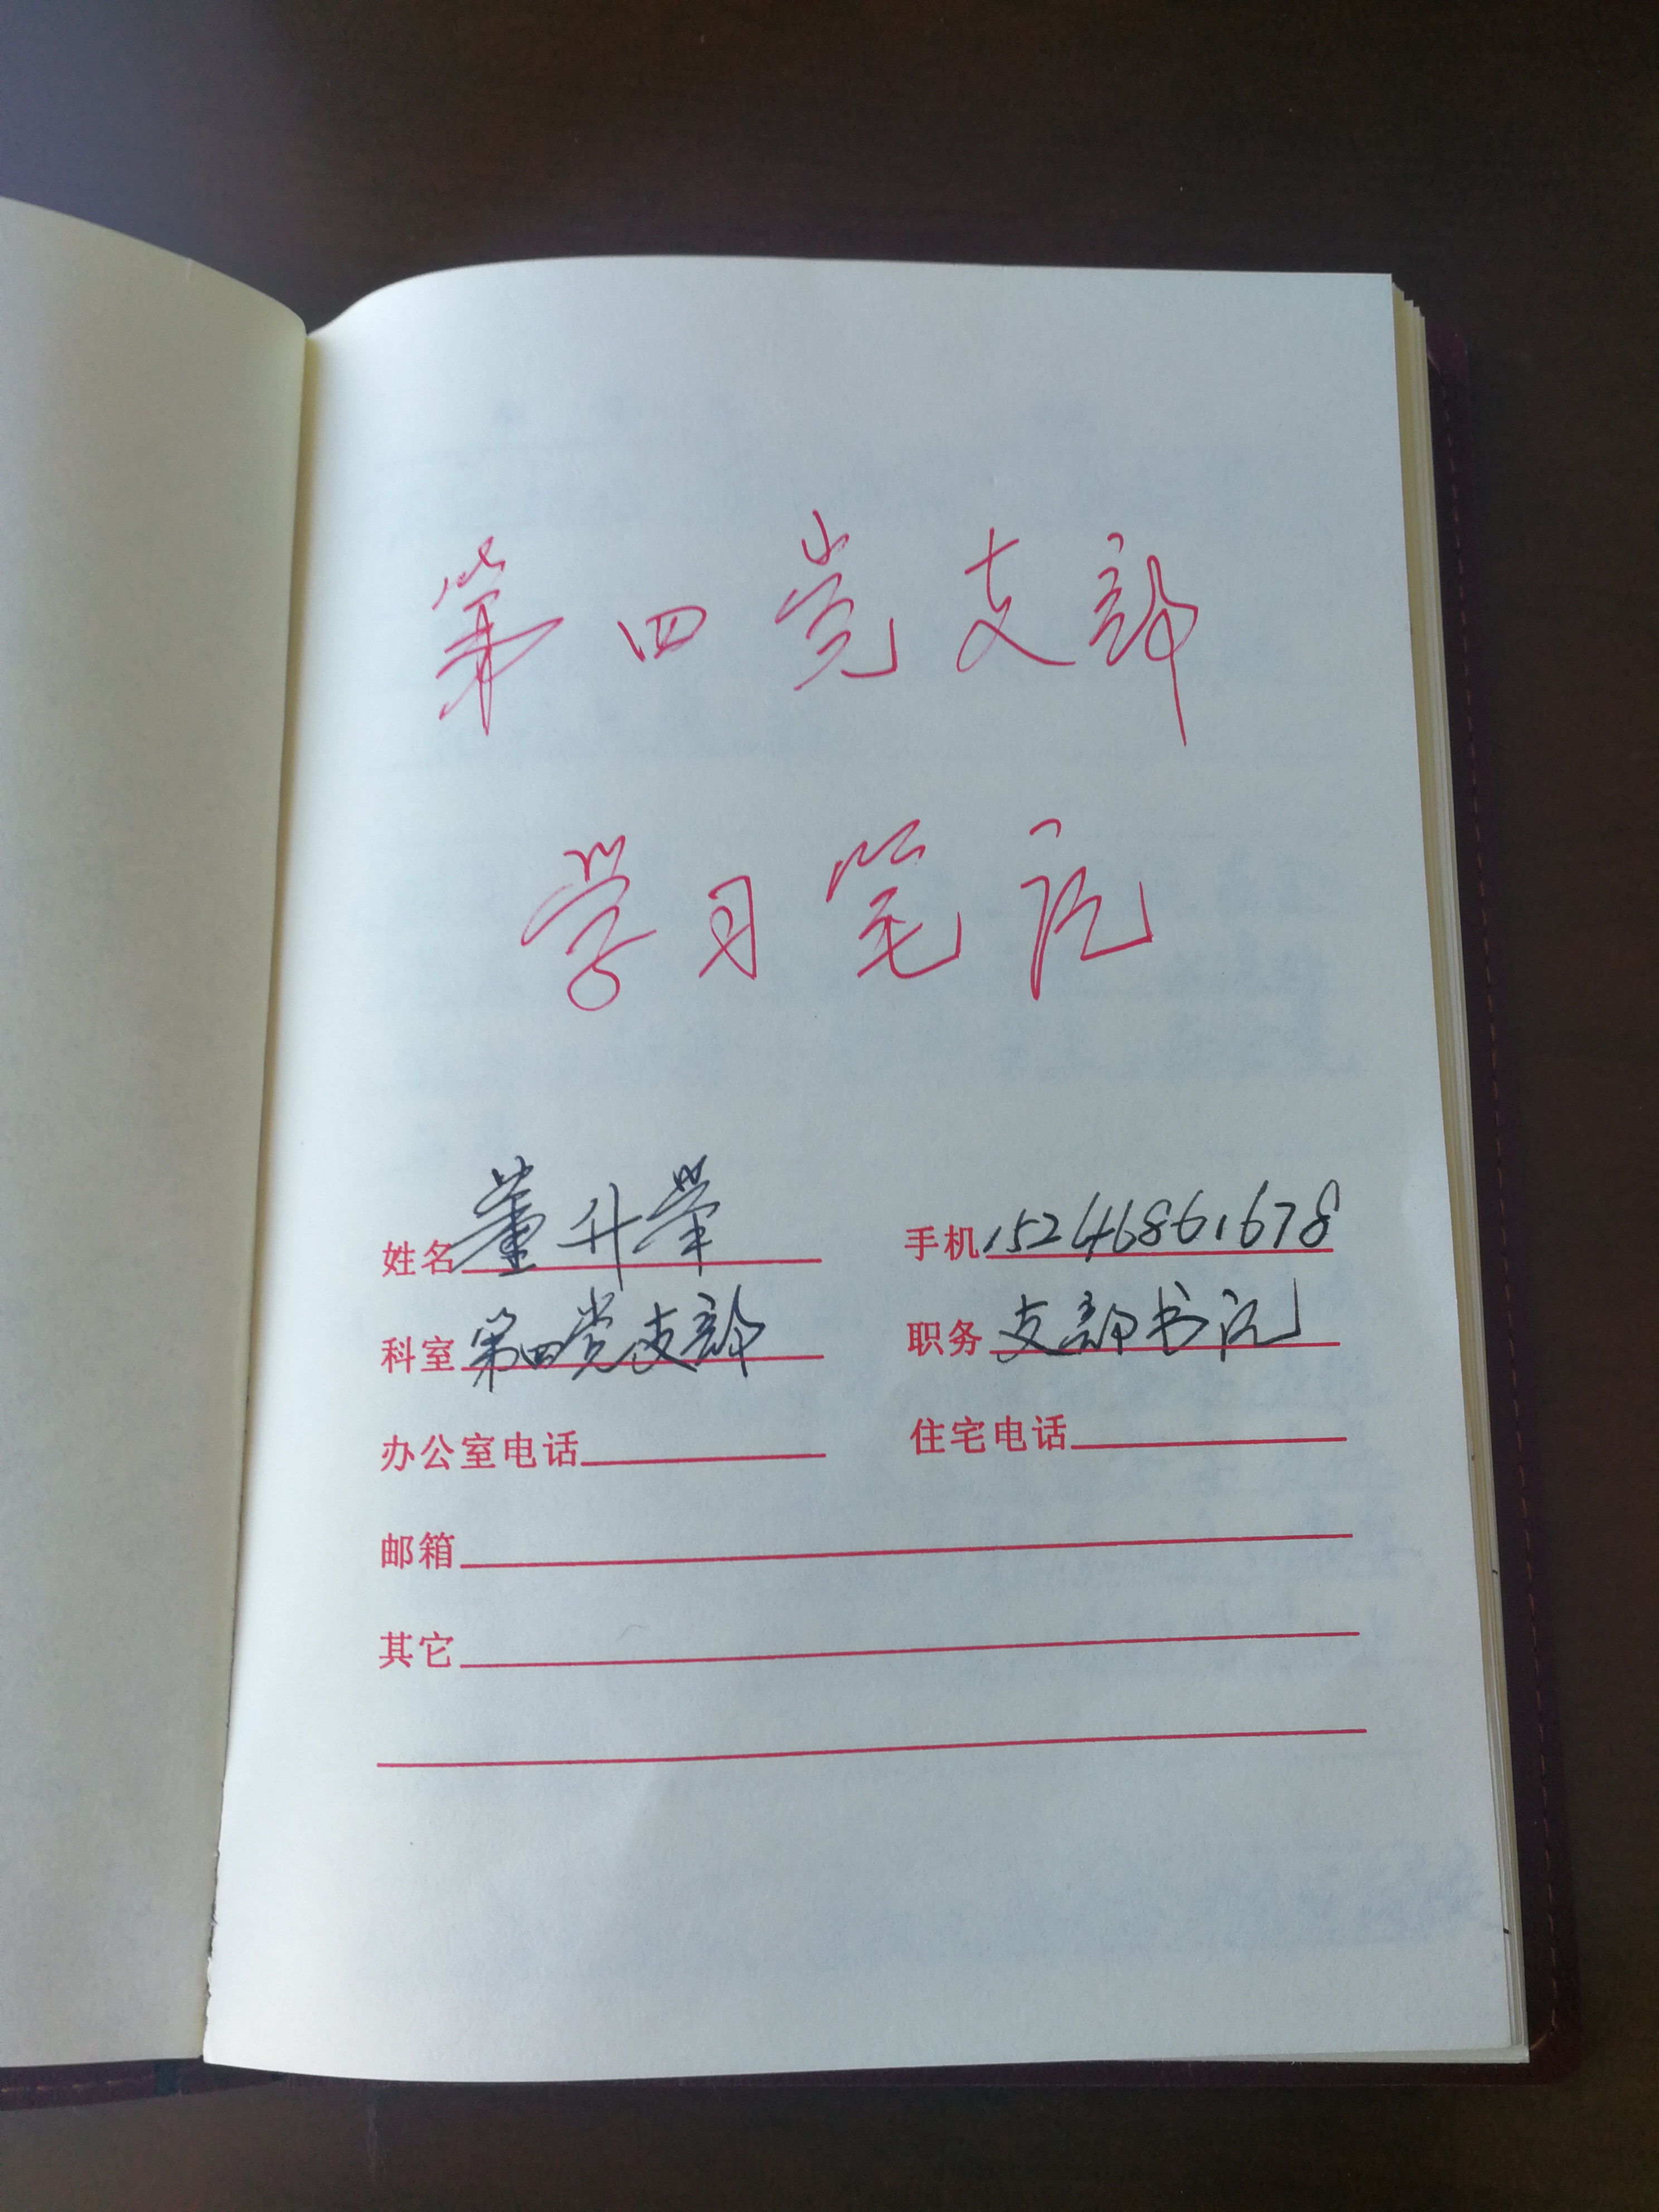 第四党支部
学习笔记
姓名 董升荣 手机 15246861678
科室 第四党支部 职务 支部书记
办公室电话 住宅电话
邮箱
其它